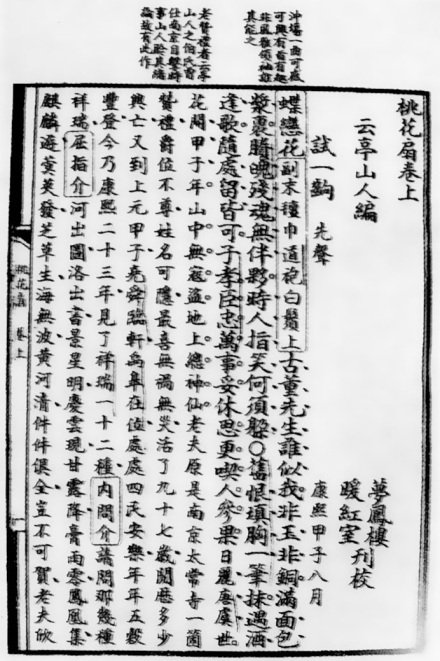 冲場一曲可感
可興有旨有趣
非風雅領袖誰
其能之
老贊禮者云亭
山人之伯氏曾
仕南京目擊時
事山人聆其緒
論故有此作
桃花扇卷上
云亭山人編
夢鳳樓
暖紅室
刊校
試一齣 先聲 康熙甲子八月
蝶戀花副末氊巾道袍白鬚上古董先生誰似我非玉非銅滿面包
漿裹賸魄殘魂無伴夥時人指笑何須躲○舊恨填胸一筆抹遇酒
逢歌隨處留皆可子孝臣忠萬事妥休思更喫人參果日麗唐虞世
花開甲子年山中無寇盜地上總神仙老夫原是南京太常寺一箇
贊禮爵位不尊姓名可隱最喜無禍無災活了九十七歲閱歷多少
興亡又到上元甲子堯舜臨軒禹皋在位處處四民安樂年年五穀
豐登今乃康熙二十三年見了祥瑞一十二種內問介請問那幾種
祥瑞屈指介河出圖洛出書景星明慶雲現甘露降膏雨零鳳凰集
麒麟遊蓂莢發芝草生海無波黃河清件件俱全豈不可賀老夫欣
桃花扇 卷上